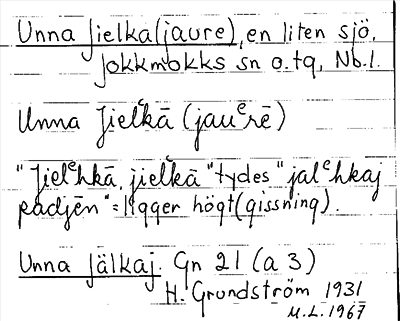 Unna Jielka (jaure), en liten sjö,
Jokkmokks sn o. tg, Nb. l.
Unna Jielᵉkā (jauᵉrē)
"Jielᵉhkā, jielᵉkā" tydes "jalᵉhkaj
padjēn" = ligger högt (gissning).
Unna Jälkaj. Gn 21 (a 3)
H. Grundström 1931
M.L. 1967